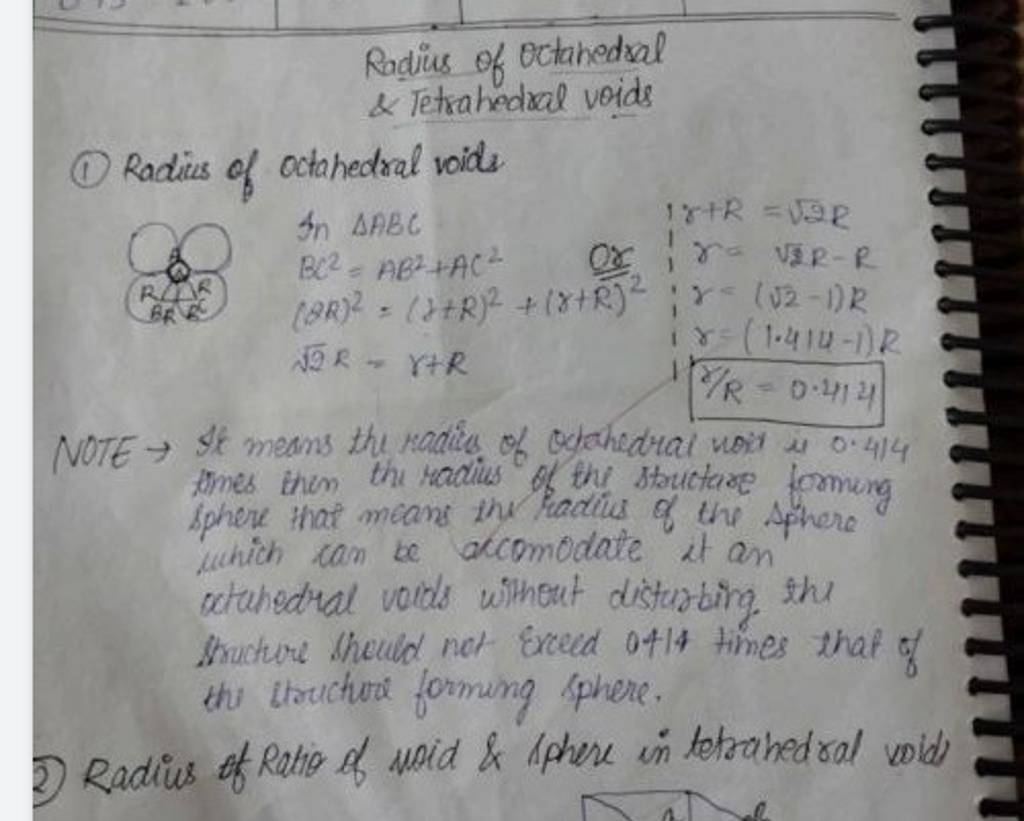 Radius of Octahedral
& Tetrahedral voids
① Radius of octahedral voids
In ΔABC
BC² = AB² + AC²
(2R)² = (r+R)² + (r+R)²
√2 R = r+R
Or
r+R = √2R
r = √2R - R
r = (√2 - 1)R
r = (1.414-1)R
r/R = 0.414
A
R R
B R R C
NOTE → It means the radius of octahedral void is 0.414
times then the radius of the structure forming
sphere that means the radius of the sphere
which can be accomodate it an
octahedral voids without disturbing the
structure should not Exceed 0414 times that of
the structure forming sphere.
2) Radius of Ratio of void & sphere in tetrahedral voids